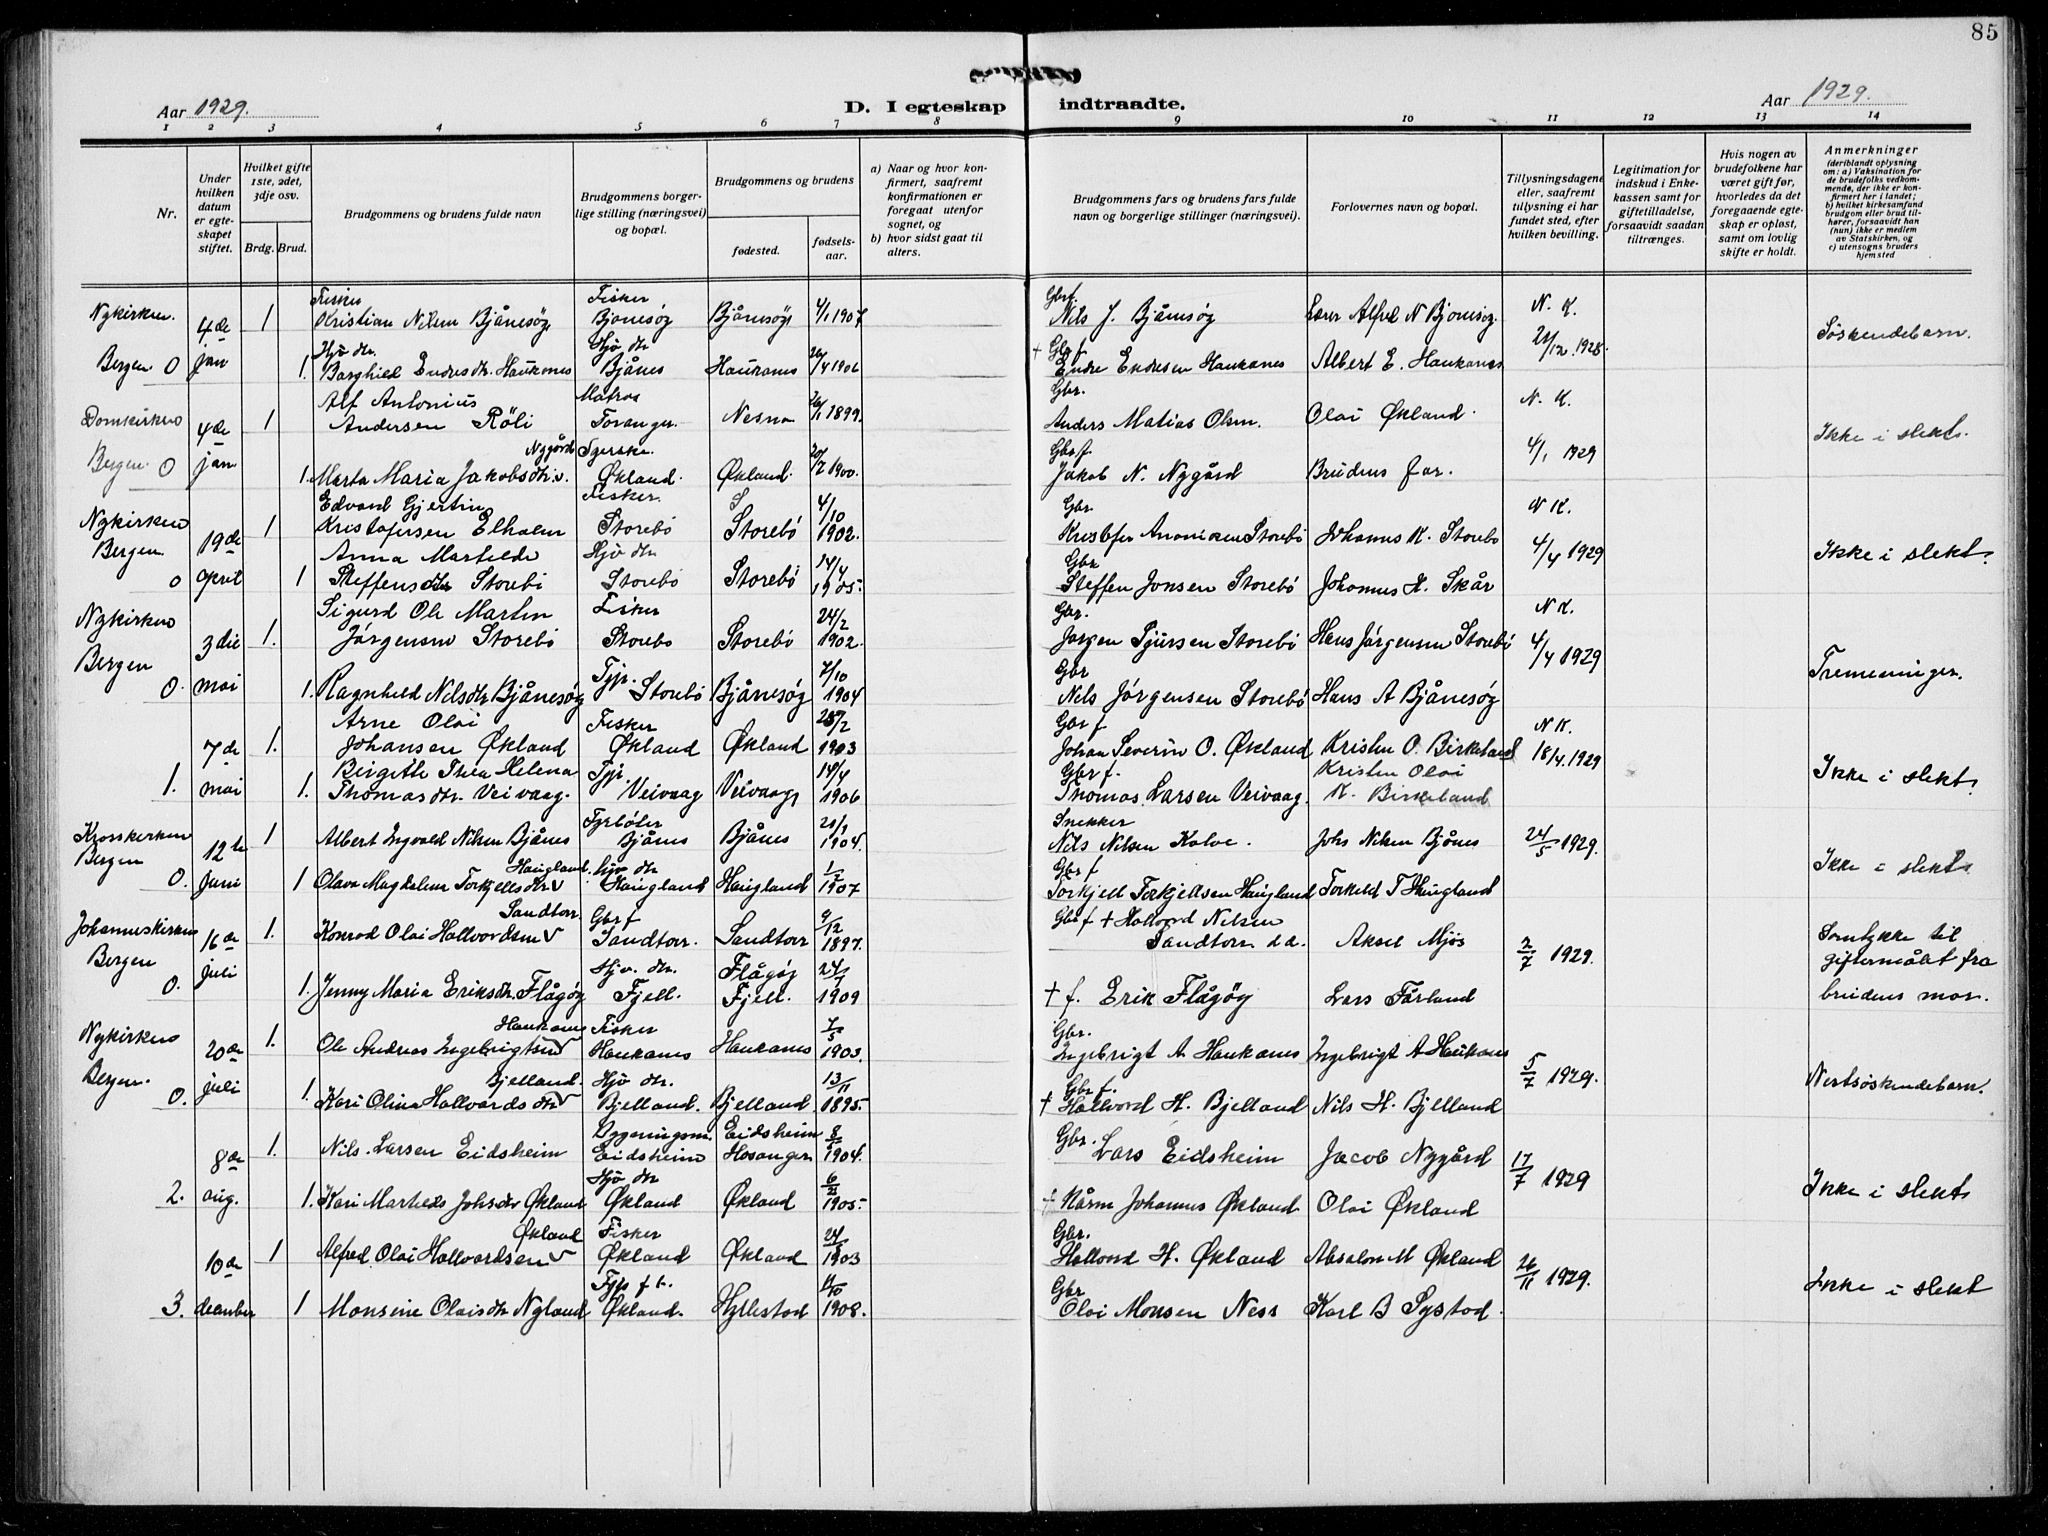 85
Aar 1929.
D. I egteskap
indtraadte.
Aar 1929.
1 2 3 4 5 6 7 8 9 10 11 12 13 14
Nr.
Under hvilken datum er egteskapet stiftet.
Hvilket gifte 1ste, 2det, 3dje osv.
Brdg. Brud.
Brudgommens og brudens fulde navn
Brudgommens borgerlige stilling (næringsvei) og bopæl.
Brudgommens og brudens
fødested.
fødselsaar.
a) Naar og hvor konfirmert, saafremt konfirmationen er foregaat utenfor sognet, og
b) hvor sidst gaat til alters.
Brudgommens fars og brudens fars fulde navn og borgerlige stillinger (næringsvei).
Forlovernes navn og bopæl.
Tillysningsdagene eller, saafremt tillysning ei har fundet sted, efter hvilken bevilling.
Legitimation for indskud i Enkekassen samt for giftetilladelse, forsaavidt saadan tiltrænges.
Hvis nogen av brudefolkene har været gift før, hvorledes da det foregaaende egteskap er opløst, samt om lovlig skifte er holdt.
Anmerkninger
(deriblandt oplysning om: a) Vaksination for de brudefolks vedkommende, der ikke er konfirmert her i landet; b) hvilket kirkesamfund brudgom eller brud tilhører, forsaavidt han (hun) ikke er medlem av Statskirken, og c) utensogns bruders hjemsted
Fisker Fisker Gbrf.
Nykirken. 4de 1 Kristian Nilsen Bjånesøy Bjonesøy Bjånesøy 4/1 1907 Nils J. Bjånesøy Lærer Alfred N Bjonesøy N. K.
Hjv dtr. Hjv dtr † Gbr f 21/12.1928. Søskendebarn.
Bergen 0 jan 1. Borghild Endresdtr. Haukanes Bjånes Haukanes 26/4 1906 Endre Endresen Haukanes Albert E. Haukanes
Alf Antonius Matros Gbr. N. K.
Domkirken 4de 1 Andersen Röli Toranger. Nesna 26/1 1899. Anders Matias Olsen. Olai Økland.
Nygård Syerske. Gbr f. 4/1 1929 Ikke i slekt.
Bergen. 0 jan 1. Marta Maria Jakobsdtr. v. Økland. Økland. 20/7 1900. Jakob N. Nygård Brudens far.
Edvard Gjertin Fisker. 4/10 Gbr. N K.
Nykirken 19de 1 Kristofersen Elholm Storebö Storebö 1902. Kristofer Storebö Johannes K. Storebö
Bergen. Anna Mathilde Hjv dtr 14/4 Gbr 4/4 1929 Ikke i slekt.
0 april 1 Steffensdtr Storebö Storebö Storebö 1905. Steffen Jonsen Storebö Johannes H. Skår
Sigurd Ole Martin Fisker 24/2 Gbr. N K.
Nykirken 3die 1. Jørgensen Storebö Storebö Storebö 1902. Jørgen Sjursen Storebö Hans Jörgensen Storebö 4/4 1929
Bergen Tjp. 7/10 Gbr Tremenninger.
0. mai 1. Ragnhild Nilsdtr Bjånesøy Storebö Bjånesøy 1904 Nils Jørgensen Storebö Hans A Bjånesøy
Arne Olai Fisker 25/2 Gbr f N K.
7de 1. Johansen Økland Økland Økland 1903 Johan Severin O. Økland Kristen O. Birkeland 18/4.1929
Birgitte Thea Helena Tjp. 14/4 Gbr f. Kristen Olai Ikke i slekt.
1. mai 1. Thomasdtr. Veivaag. Veivaag Veivaag 1906 Thomas Larsen Veivaag. K. Birkeland
Fyrböter 21/1 Snekker
Korskirken 12te 1 Albert Ingvald Nilsen Bjånes Bjånes Bjånes 1904. Nils Nilsen Kalve. Johs Nilsen Bjånes 24/5 1929.
Bergen Haugland. hjv dtr 1/7 Gbr f Ikke i slekt.
0. juni 1 Olava Magdalena Torkjellsdtr v Haugland Haugland 1907 Torkjell Torkjellsen Haugland Torkeld T Haugland
Sandtorr. Gbr f 9/12 Gbr f † Hallvord Nilsen
Johanneskirken 16de 1. Konrad Olai Hallvordsen v Sandtorr. Sandtorr 1897. Sandtorr d.a. Aksel Mjös 2/7 1929. Samtykke til
Bergen juli Hjv. dtr. Flågøy 24/7 giftermålet fra
0. 1. Jenny Maria Eriksdtr. Flågøy Fjell. Fjell. 1909 † f. Erik Flågøy Lars Fårland brudens mor.
Haukanes Fisker 7/5 Gbr.
Nykirken 20de 1. Ole Andreas Ingebrigtsen v Haukanes Haukanes 1903. Ingebrigt A Haukanes Ingebrigt A Haukanes 5/7 1929.
Bergen. juli Bjelland. Hjv dtr. 13/11 Gbr f. Nestsøskendebarn.
0. 1. Kari Olina Hallvardsdtr v Bjelland. Bjelland. 1895. † Hallvord H. Bjelland Nils H. Bjelland
Bygningsm. Eidsheim 8/5 Gbr.
8de 1. Nils Larsen Eidsheim Eidsheim Hosanger 1904. Lars Eidsheim Jacob Nygård 17/7 1929
Hjv dtr 6/2 Ikke i slekt
2. aug. 1. Kari Mathilde Johsdtr Økland Økland Økland 1905. † Johannes Økland Olai Økland
Økland Fisker Gbr.
10de 1 Alfred Olai Hallvordsen v Økland Økland 1903 Hallvord H. Økland Absalon M Økland 26/11 1929.
Gbr Ikke i slekt
3. december 1 Monsine Olaisdtr Nyland Økland. Hyllestad 1908. Olai Monsen Ness Karl B Systad.